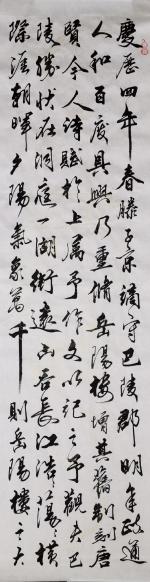 慶歷四年春滕子京謫守巴陵郡明年政通
人和百廢具興乃重脩岳陽樓增其舊制刻唐
賢今人詩賦於上属予作文以記之予觀夫巴
陵勝狀在洞庭一湖銜遠山吞長江浩〻蕩〻橫
際涯朝暉夕陽氣象萬千則岳陽樓之大